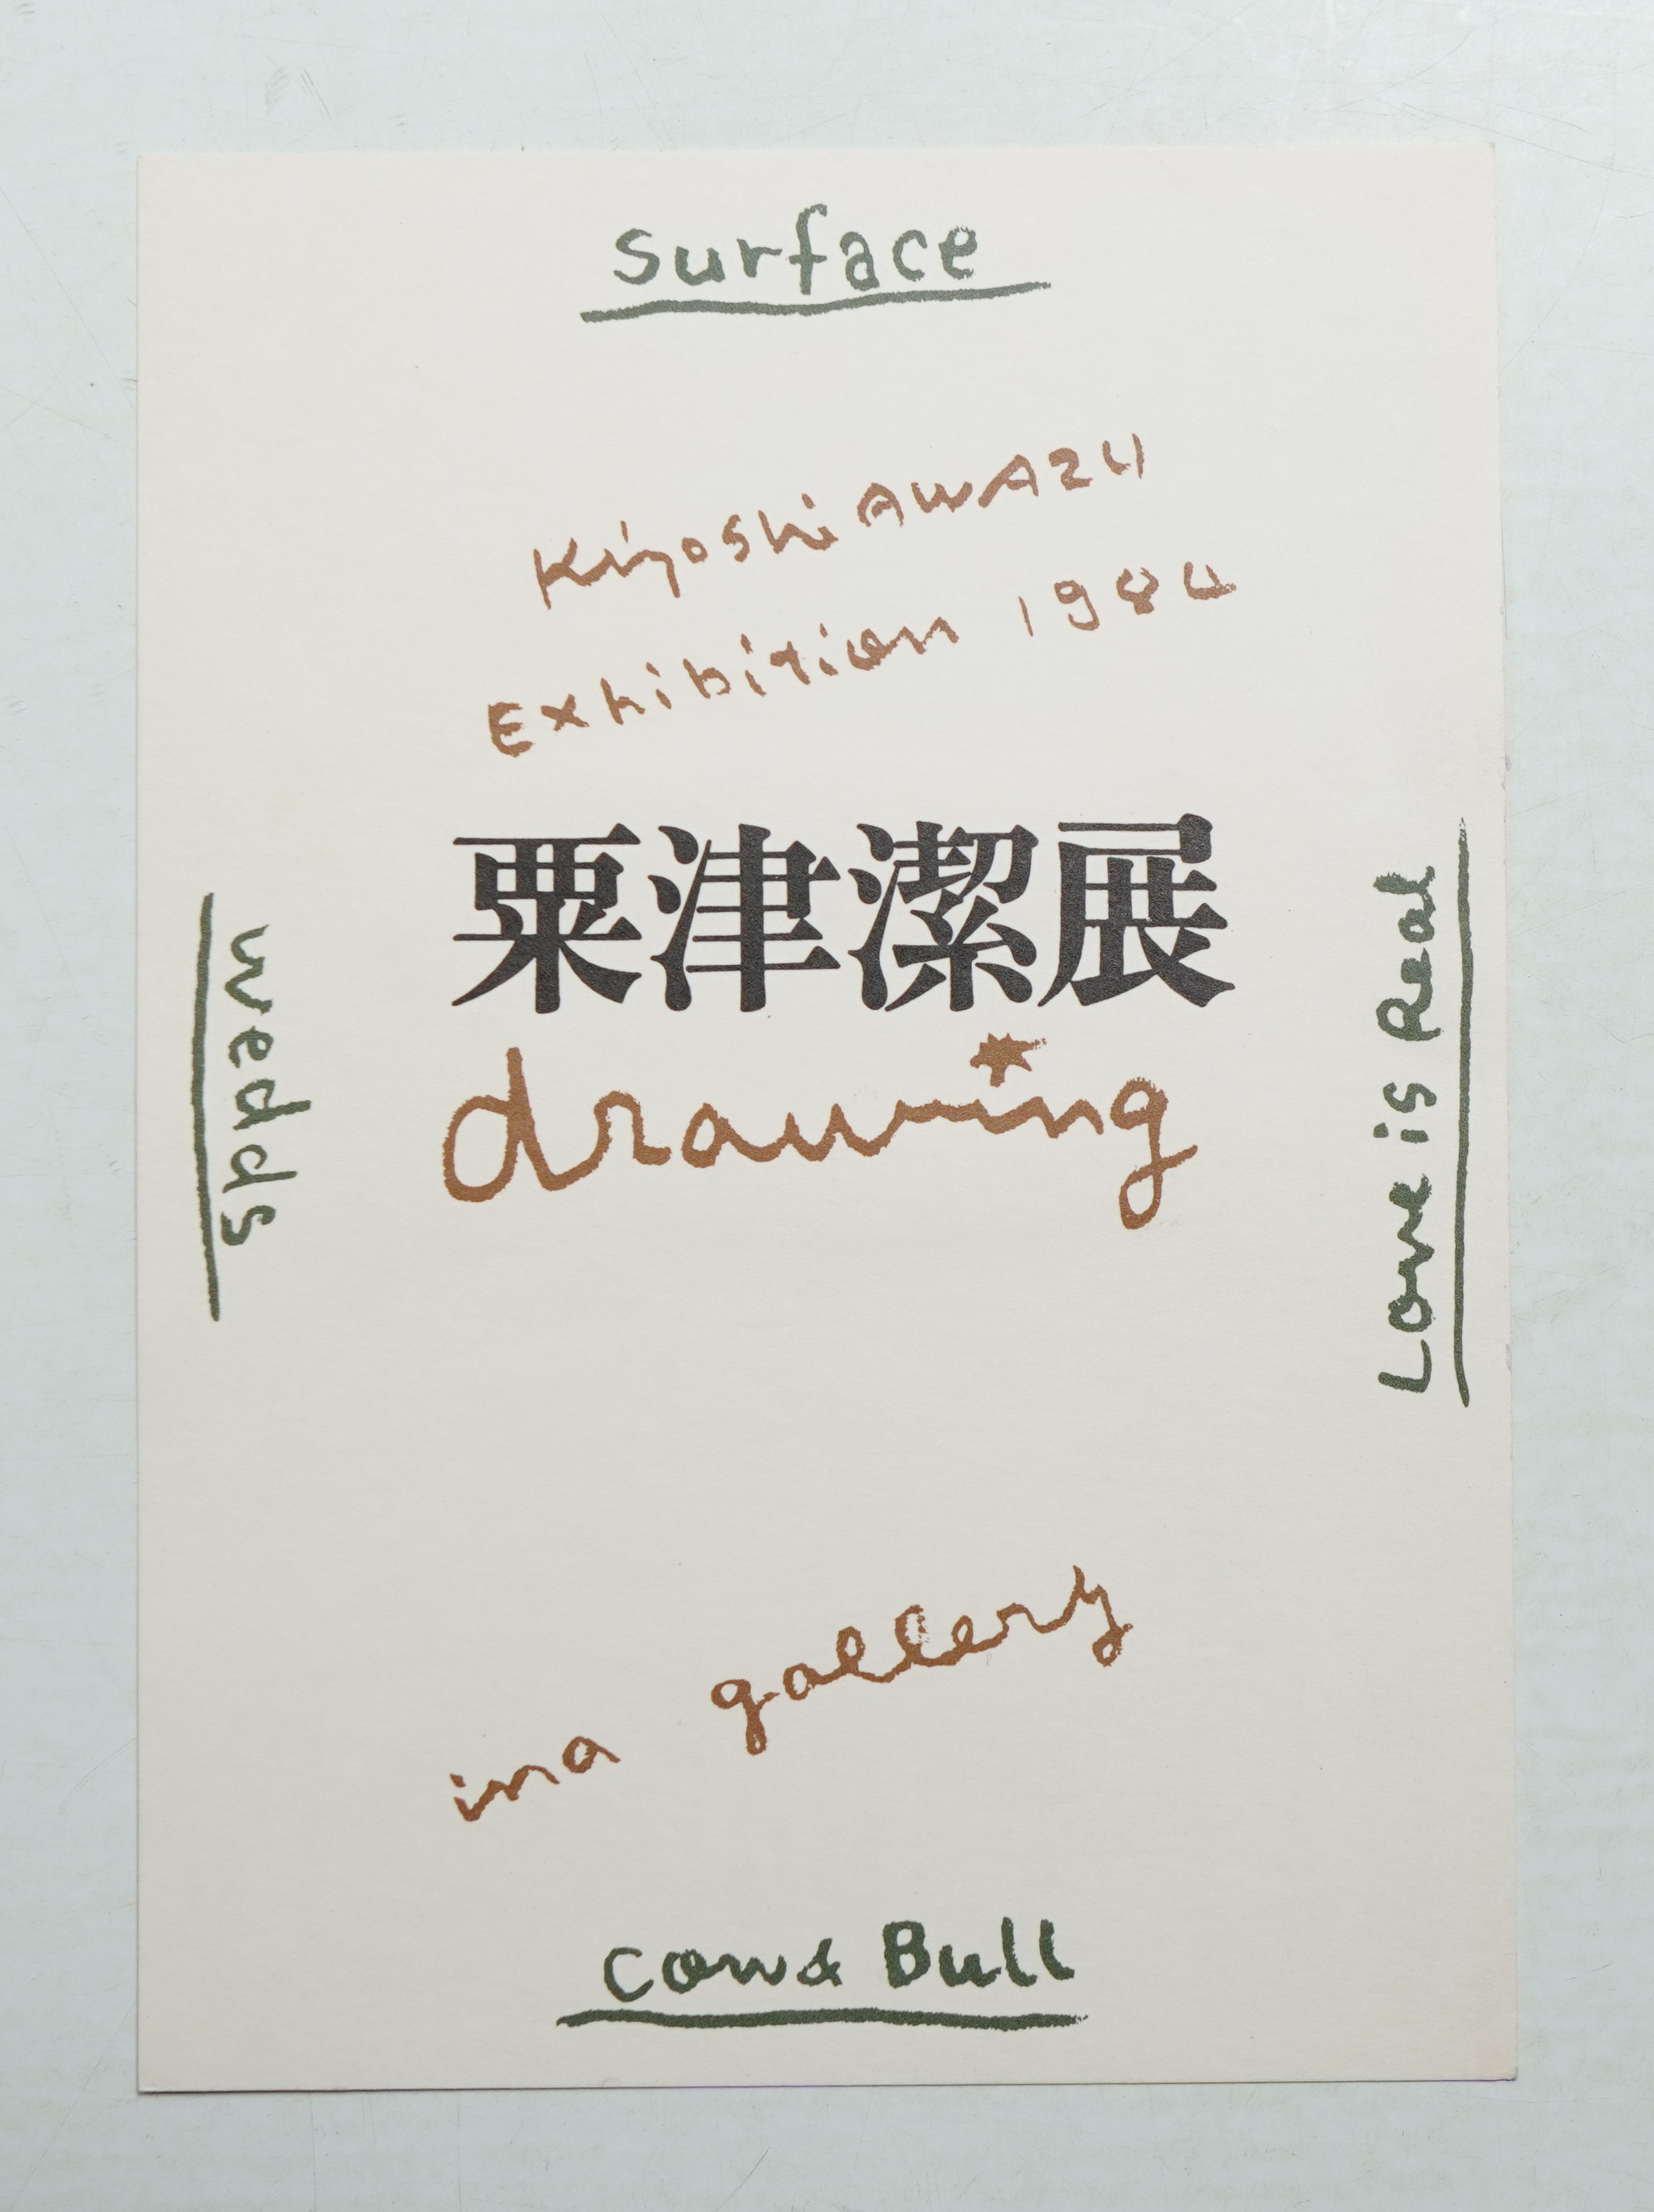 Surface
Kiyoshi AWAZU
Exhibition 1980
粟津潔展
drawing
wedds
Love is Real
ina gallery
Cow & Bull